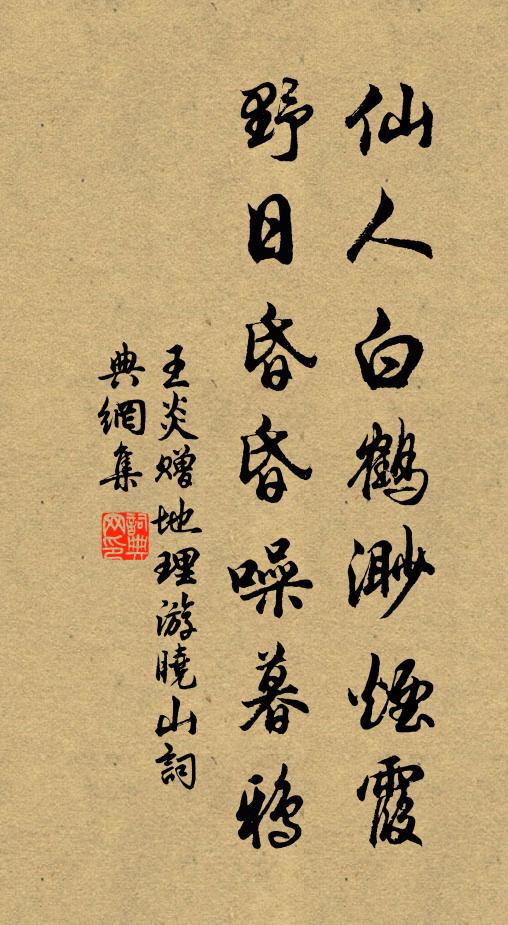 仙人白鶴渺煙霞
野日昏昏噪暮鴉
王炎贈地理游曉山詞
典網集
詞典網印